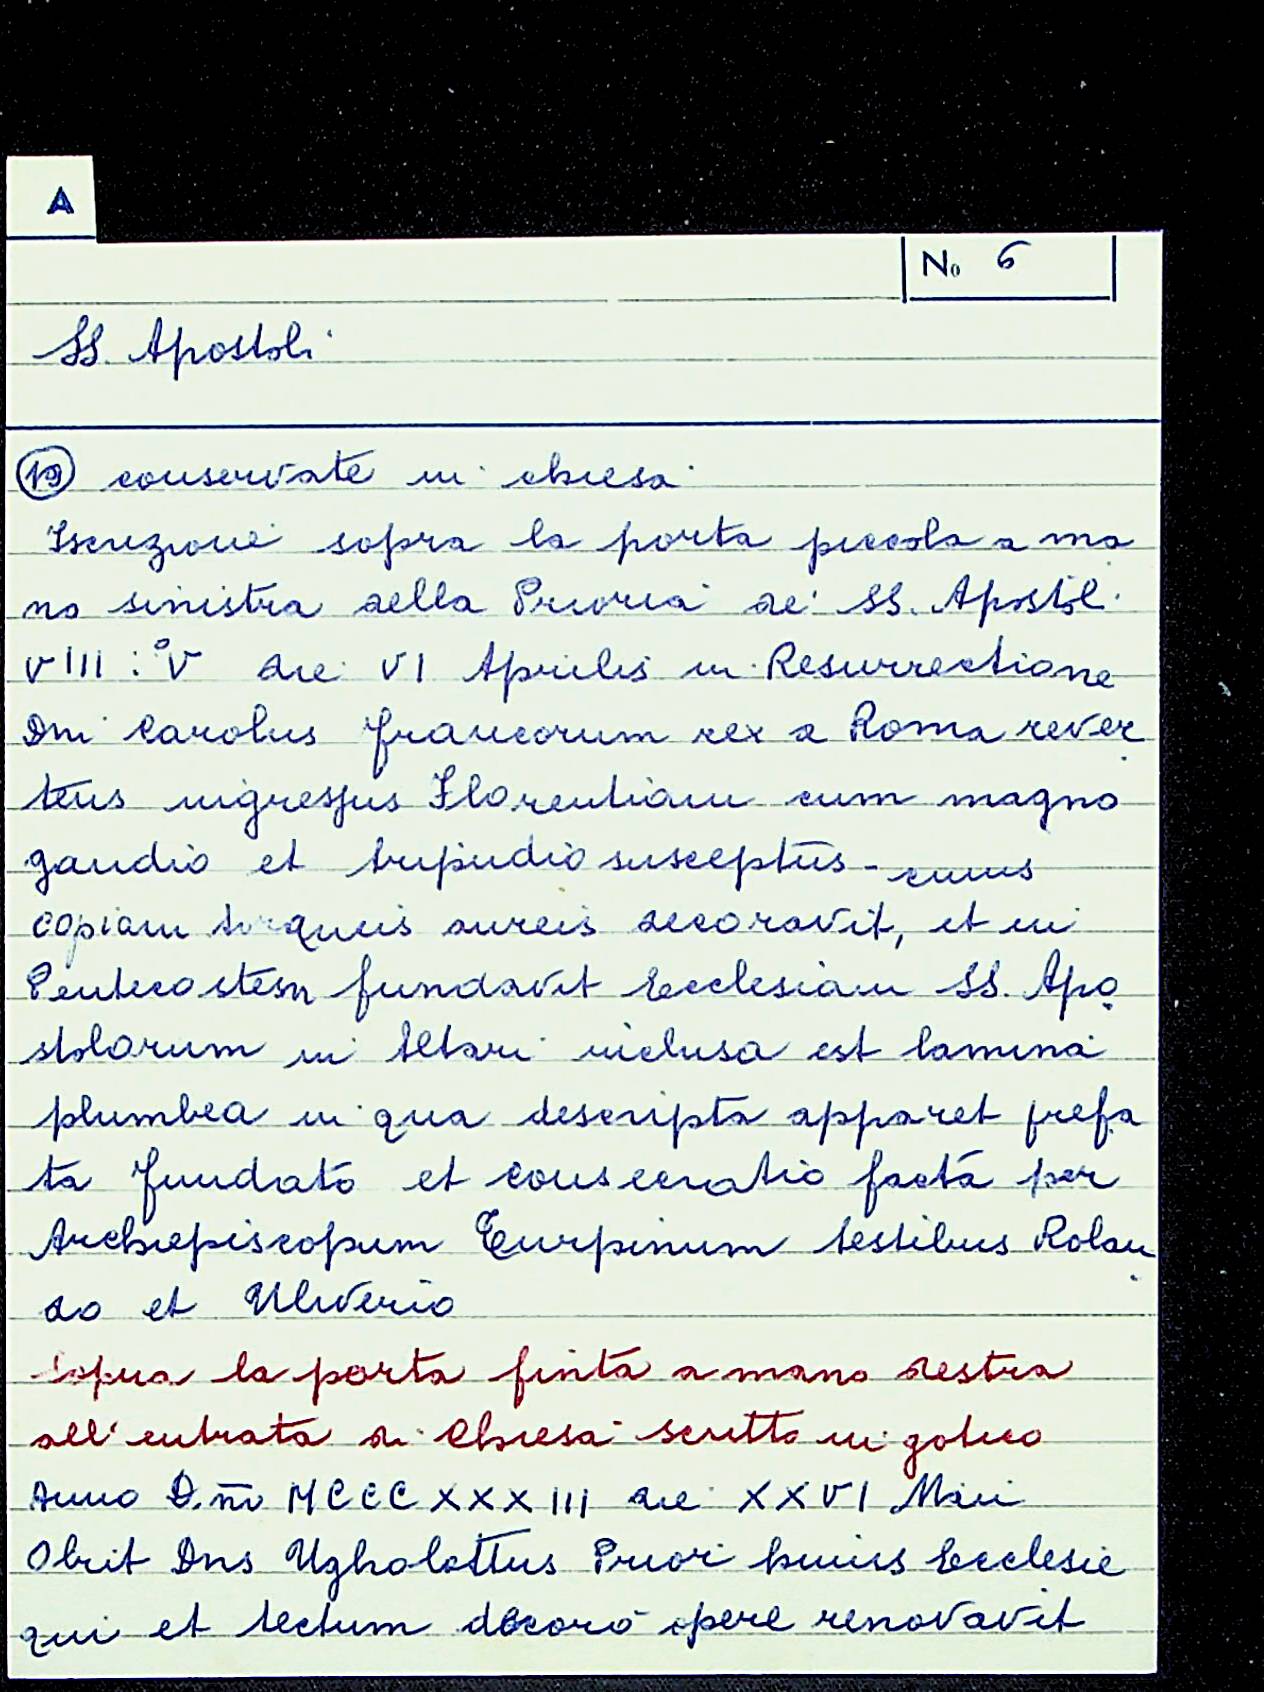 A
No 6
SS. Apostoli
19 conservate in chiesa
Iscrizione sopra la porta piccola a ma
no sinistra della Prioria de' SS. Apostol.
VIII : °V die VI Aprilis in Resurrectione
Dni Carolus Francorum rex a Roma rever
tens ingressus Florentiam cum magno
gaudio et tripudio susceptus - civius
copiam torqueis aureis decoravit, et in
Pentecostem fundavit Ecclesiam SS. Apo
stolorum in Altari inclusa est lamina
plumbea in qua descripta apparet prefa
ta fundatō et consecratio facta per
Archiepiscopum Turpinum testibus Rolan
do et Uliverio
sopra la porta finta a mano destra
all'entrata di Chiesa scritto in gotico
Anno D. nī MCCCXXXIII die XXVI Maii
Obiit Dns Ugholottus Prior huius Ecclesie
qui et tectum decoro opere renovavit